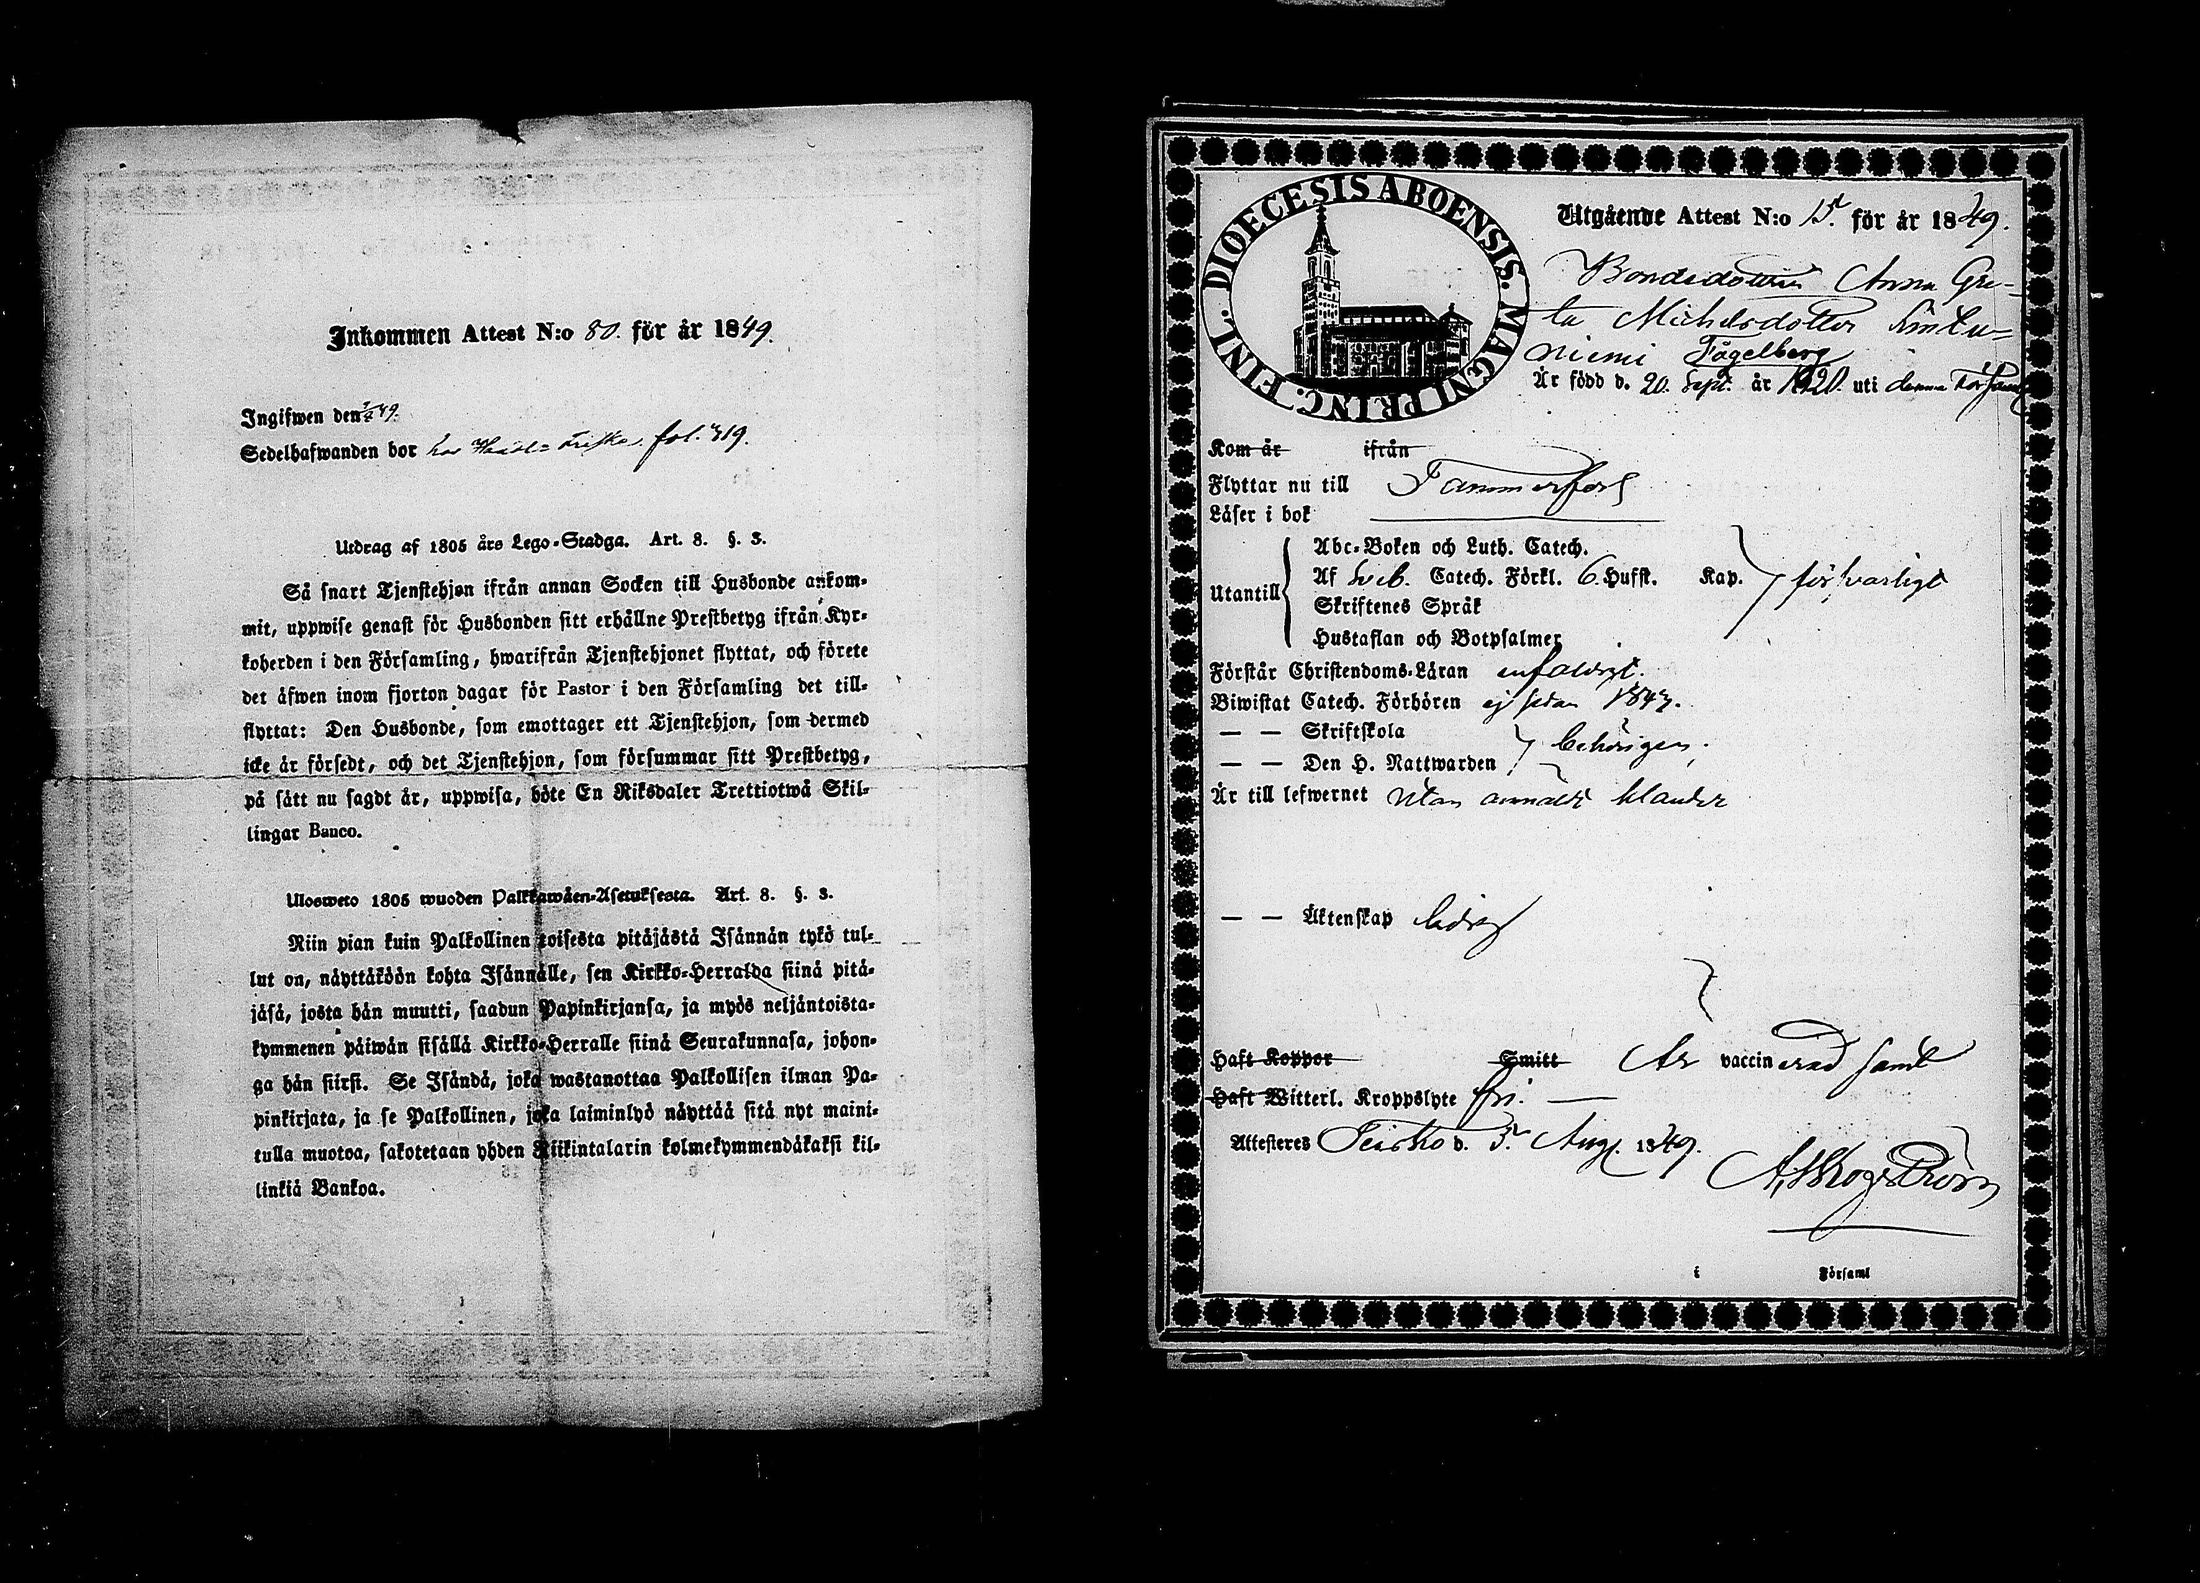 Inkommen Attest N:o 80. för år 1849.
Ingifwen den 49.
Sedelhafwanden bor hos fol. 319.
Utdrag af 1805 års Lego-Stadga. Art. 8. §. 3.
Så snart Tjenstehjon ifrån annan Socken till Husbonde ankom-
mit, uppwise genast för Husbonden sitt erhållne Prestbetyg ifrån Kyr-
koherden i den Församling, hwarifrån Tjenstehjonet flyttat, och förete
det äfwen inom fjorton dagar för Pastor i den Församling det till-
flyttat: Den Husbonde, som emottager ett Tjenstehjon, som dermed
icke är försedt, och det Tjenstehjon, som försummar sitt Prestbetyg,
på sätt nu sagdt är, uppwisa, böte En Riksdaler Trettiotwå Skil-
lingar Banco.
Ulosweto 1805 wuoden Palkkawäen-Asetuksesta. Art. 8. §. 3.
Niin pian kuin Palkollinen toisesta pitäjästä Isännän tykö tul-
lut on, näyttäköön kohta Isännälle, sen Kirkko-Herralda siinä pitä-
jäsä, josta hän muutti, saadun Papinkirjansa, ja myös neljäntoista-
kymmenen päiwän sisällä Kirkko-Herralle siinä Seurakunnasa, johon-
ga hän siirsi. Se Isändä, joka wastanottaa Palkollisen ilman Pa-
pinkirjata, ja se Palkollinen, joka laiminlyö näyttää sitä nyt maini-
tulla muotoa, sakotetaan yhden Riikintalarin kolmekymmendäkaksi kil-
linkiä Bankoa.
DIOECESIS ABOENSIS. MAGNI PRINC. FINL.
Utgående Attest N:o 15. för år 1849.
Bondedottren Anna Gre-
ta Michelsdotter
niemi Fågelberg
Är född d. 20. Sept. år 1820. uti denna Församl
Kom år ifrån
Flyttar nu till Tammerfors
Läser i bok
Abc-Boken och Luth. Catech.
Utantill Af Sveb. Catech. Förkl. 6. Hufst. Kap. försvarligt
Skriftenes Språk
Hustaflan och Botpsalmer
Förstår Christendoms-Läran enfaldigt.
Biwistat Catech. Förhören ej sedan 1847.
— — Skriftskola
— — Den H. Nattwarden behörigen.
Är till lefwernet utan anmäldt klander
— — Äktenskap ledig
Haft Koppor Smitt Är vaccinerad samt
Haft Witterl. Kroppslyte fri.
Attesteres Teisko d. 5. Aug. 1849.
i Församl